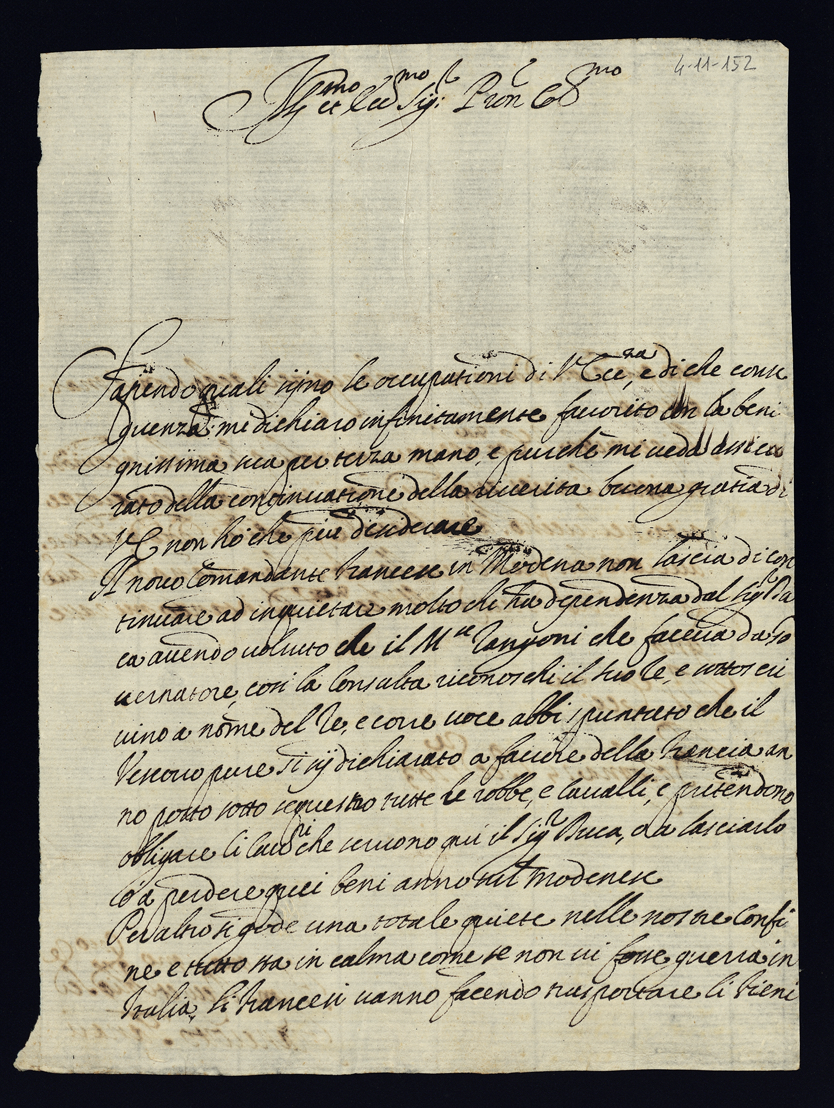 4-11-152
Ill.mo et Ecc.mo Sig.r Pron Col.mo
Sapendo quali sijno le occupationi di V Ecc.za, e di che conse
guenza, mi dichiaro infinitamente favorito con la beni
gnissima sua per terza mano, e purche mi veda assicu
rato della continuatione della riverita buona gratia di
VE non ho che più desiderare
Il novo Comandante francese in Modena non lascia di con
tinuare ad inquietare molto chi hà dependenza dal Sig.r Du
ca avendo voluto che il M.se Rangoni che faceva da Go
vernatore, così la Consulta riconoschi il suo Re, e sottoscri
vino a nome del Re, e corre voce abbi spuntato che il
Vescovo pure si sij dichiarato a favore della Francia an
no posto sotto sequestro tutte le robbe, e Cavalli, e pretendono
obligare li Cav.ri che servono qui il Sig.r Duca, o a lasciarlo
ò a perdere quei beni anno sul Modenese
Per altro si gode una totale quiete nelle nostre Confi
ne e tutto sta in calma come se non vi fosse guerra in
Italia, li francesi vanno facendo trasportare li fieni